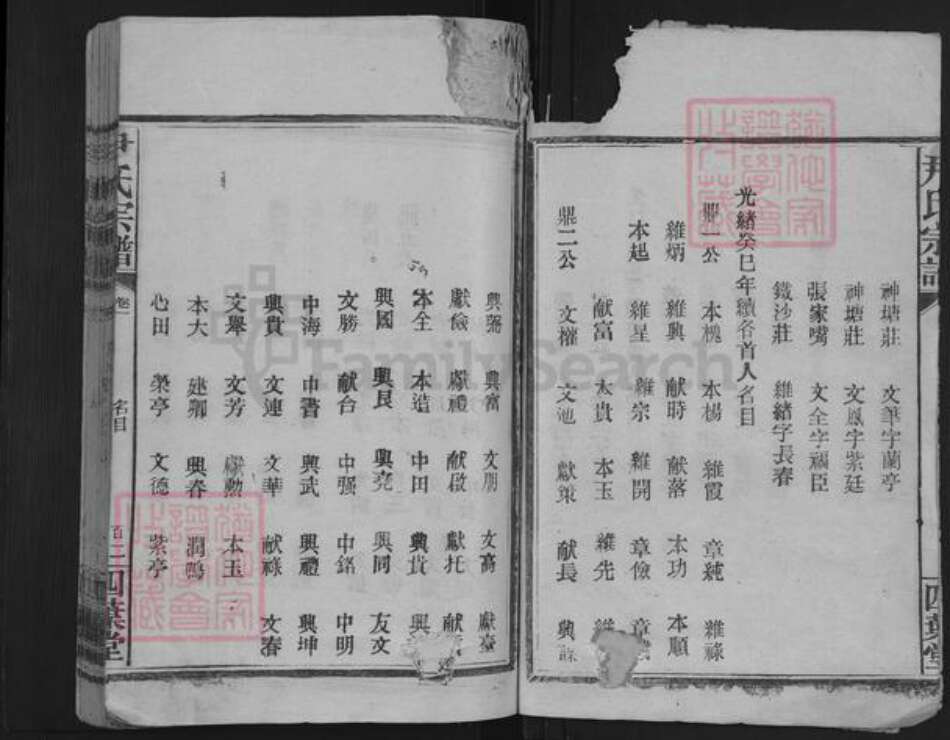 神塘莊 文華字蘭亭
神塘莊 文鳳字紫廷
張家嘴 文全字福臣
鐵沙莊 維緒字長春
光緒癸巳年續各首人名目
鼎一公 本槐 本楊 維霞 章純 維祿
維炳 維興 献時 献落 本功 本順
本起 維星 維宗 維開 章儉 章
献富 大貴 本玉 維先
鼎二公 文權 文池 獻策 献長 興
四葉堂
興 興富 文朋 文高 獻臺
獻儉 獻禮 献啟 獻托 献
本全 本造 中田 興貴 興
興國 興良 興堯 興同 友文
文勝 献台 中强 中銘 中明
中海 中書 興武 興禮 興坤
興貴 文連 文華 献祿 文春
文舉 文芳 獻勳 本玉
本大 建卿 興春 潤鴨
心田 榮亭 文德 紫亭
氏宗譜 卷 名目 百二 四葉堂
FamilySearch